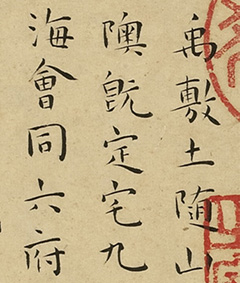 禹敷土随山
隩既定宅九
海會同六府